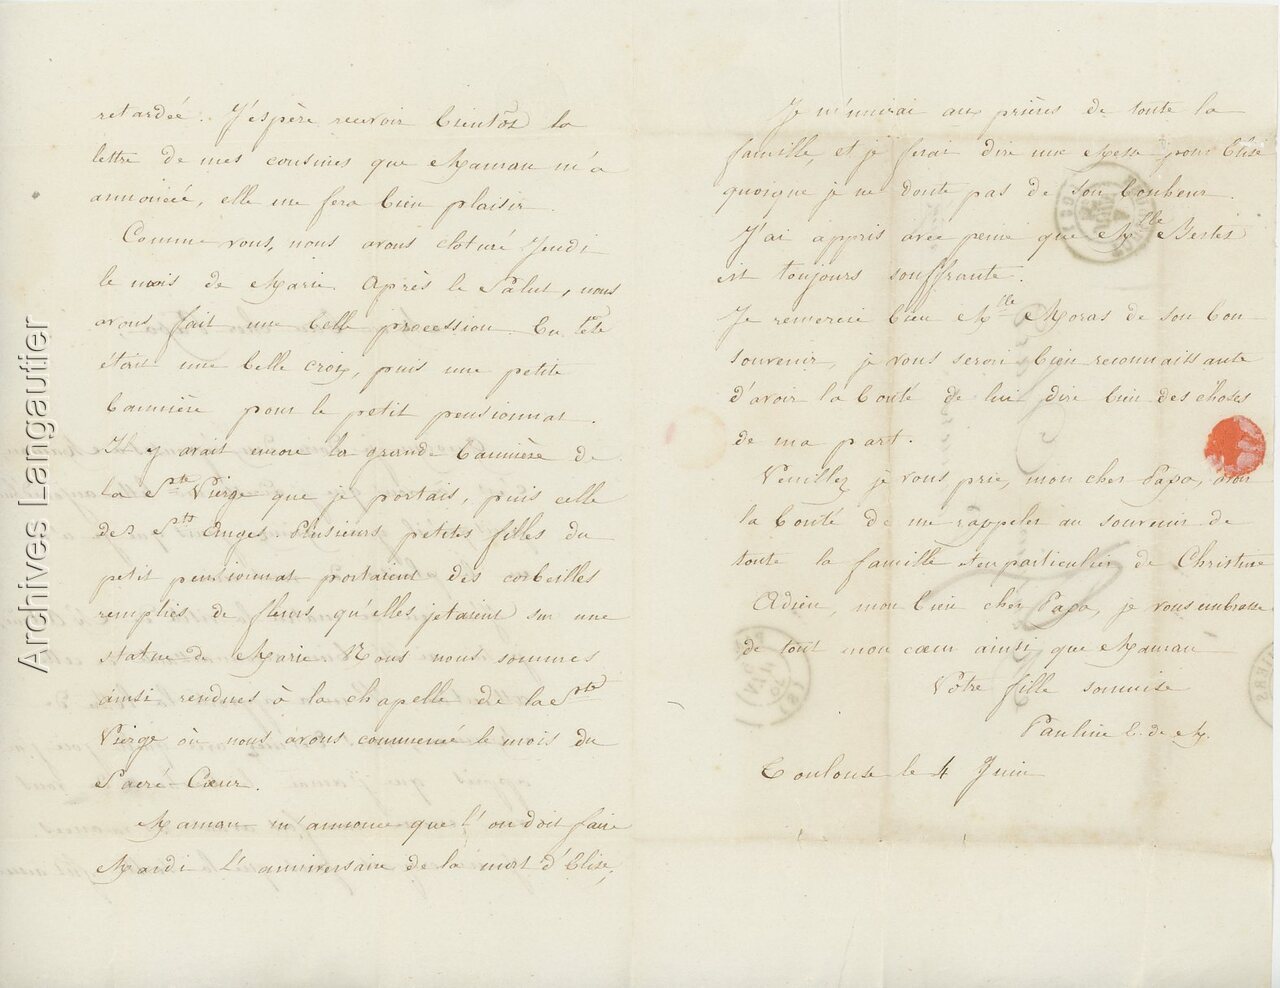 retardée. J'espère recevoir bientôt la
lettre de mes cousines que Maman m'a
annoncée, elle me fera bien plaisir.
Comme vous, nous avons cloturé Jeudi
le mois de Marie. Après le Salut, nous
avons fait une belle procession. En tête
était une belle croix, puis une petite
bannière pour le petit pensionnat.
Il y avait encore la grande bannière de
la Ste Vierge que je portais, puis celle
des Sts Anges. Plusieurs petites filles du
petit pensionnat portaient des corbeilles
remplies de fleurs qu'elles jetaient sur une
statue de Marie. Nous nous sommes
ainsi rendues à la chapelle de la Ste
Vierge où nous avons commencé le mois du
Sacré-Cœur.
Maman m'annonce que l'on doit faire
Mardi l'anniversaire de la mort d'Elise,
Je m'unirai aux prières de toute la
famille, et je ferai dire une Messe pour Elise
quoique je ne doute pas de son bonheur.
J'ai appris avec peine que Mlle
est toujours souffrante.
Je remercie bien Mlle Moras de son bon
souvenir, je vous serai bien reconnaissante
d'avoir la bonté de lui dire bien des choses
de ma part.
Veuillez je vous prie, mon cher Papa, avoir
la bonté de me rappeler au souvenir de
toute la famille et en particulier de Christine
Adieu, mon bien cher Papa, je vous embrasse
de tout mon cœur ainsi que Maman
Votre fille soumise
Pauline E. de M.
Toulouse le 4 Juin
Archives Langautier